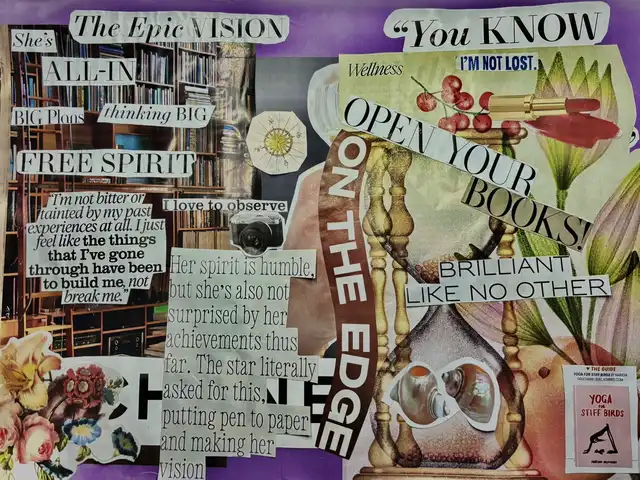 The Epic VISION
She's
ALL-IN
BIG Plans
thinking BIG
FREE SPIRIT
"I'm not bitter or
tainted by my past
experiences at all. I just
feel like the things
that I've gone
through have been
to build me, not
break me."
I love to observe
Her spirit is humble,
but she's also not
surprised by her
achievements thus
far. The star literally
asked for this,
putting pen to paper
and making her
vision
ON THE EDGE
"You KNOW
Wellness
I'M NOT LOST.
OPEN YOUR
BOOKS!
BRILLIANT
LIKE NO OTHER
THE GUIDE
YOGA
FOR
STIFF BIRDS